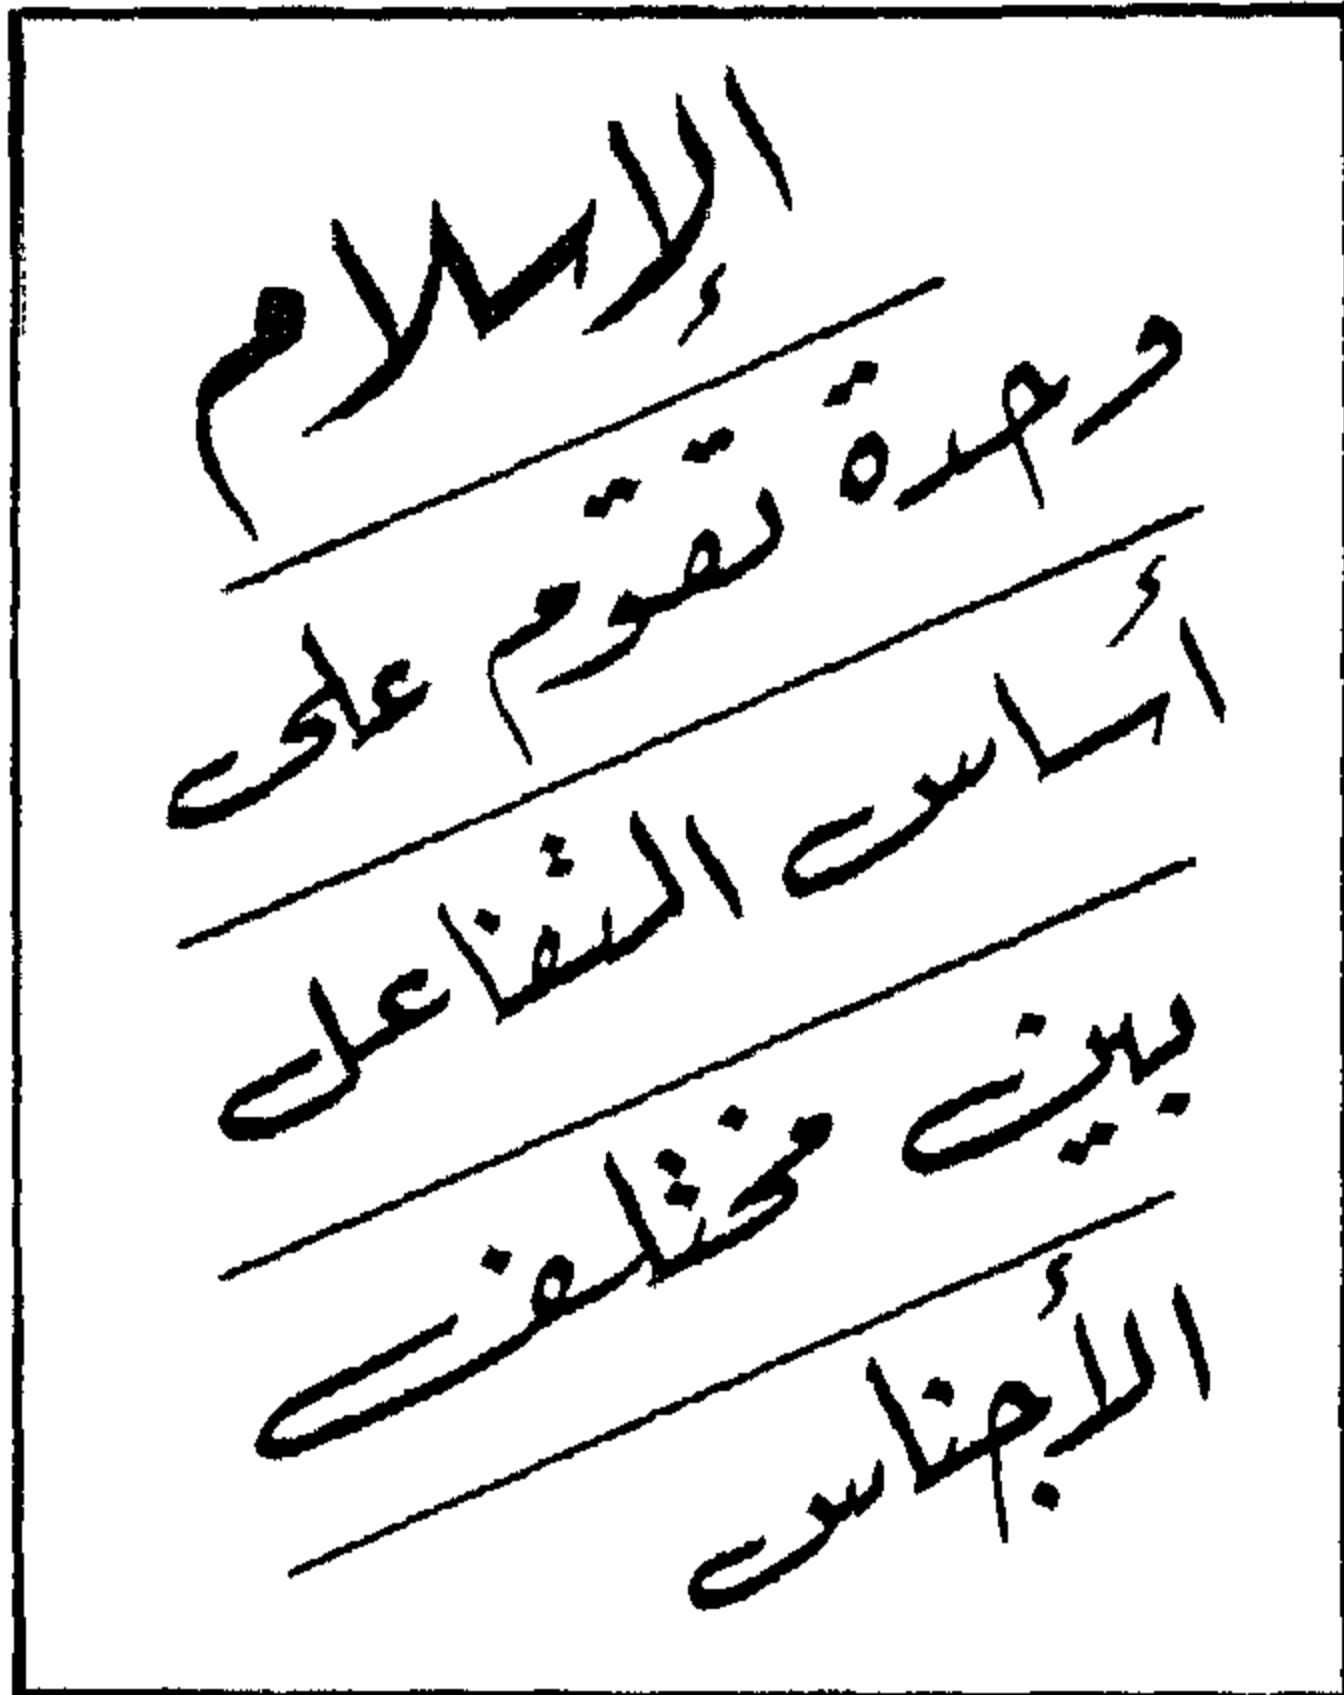 الإسلام
وحدة تقوم على
أساس التفاعل
بين مختلف
الأجناس